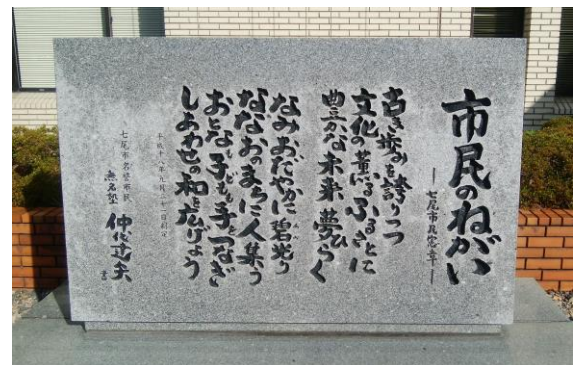 市民のねがい
―七尾市民憲章―
古き歩みを誇りつつ
文化の薫るふるさとに
豊かな未来夢ひらく
なみおだやかに碧光り
ななおのまちに人集う
おとなも子どもも手をつなぎ
しあわせの和を広げよう
平成十八年九月二十一日制定
七尾市名誉市民
無名塾 仲代達矢